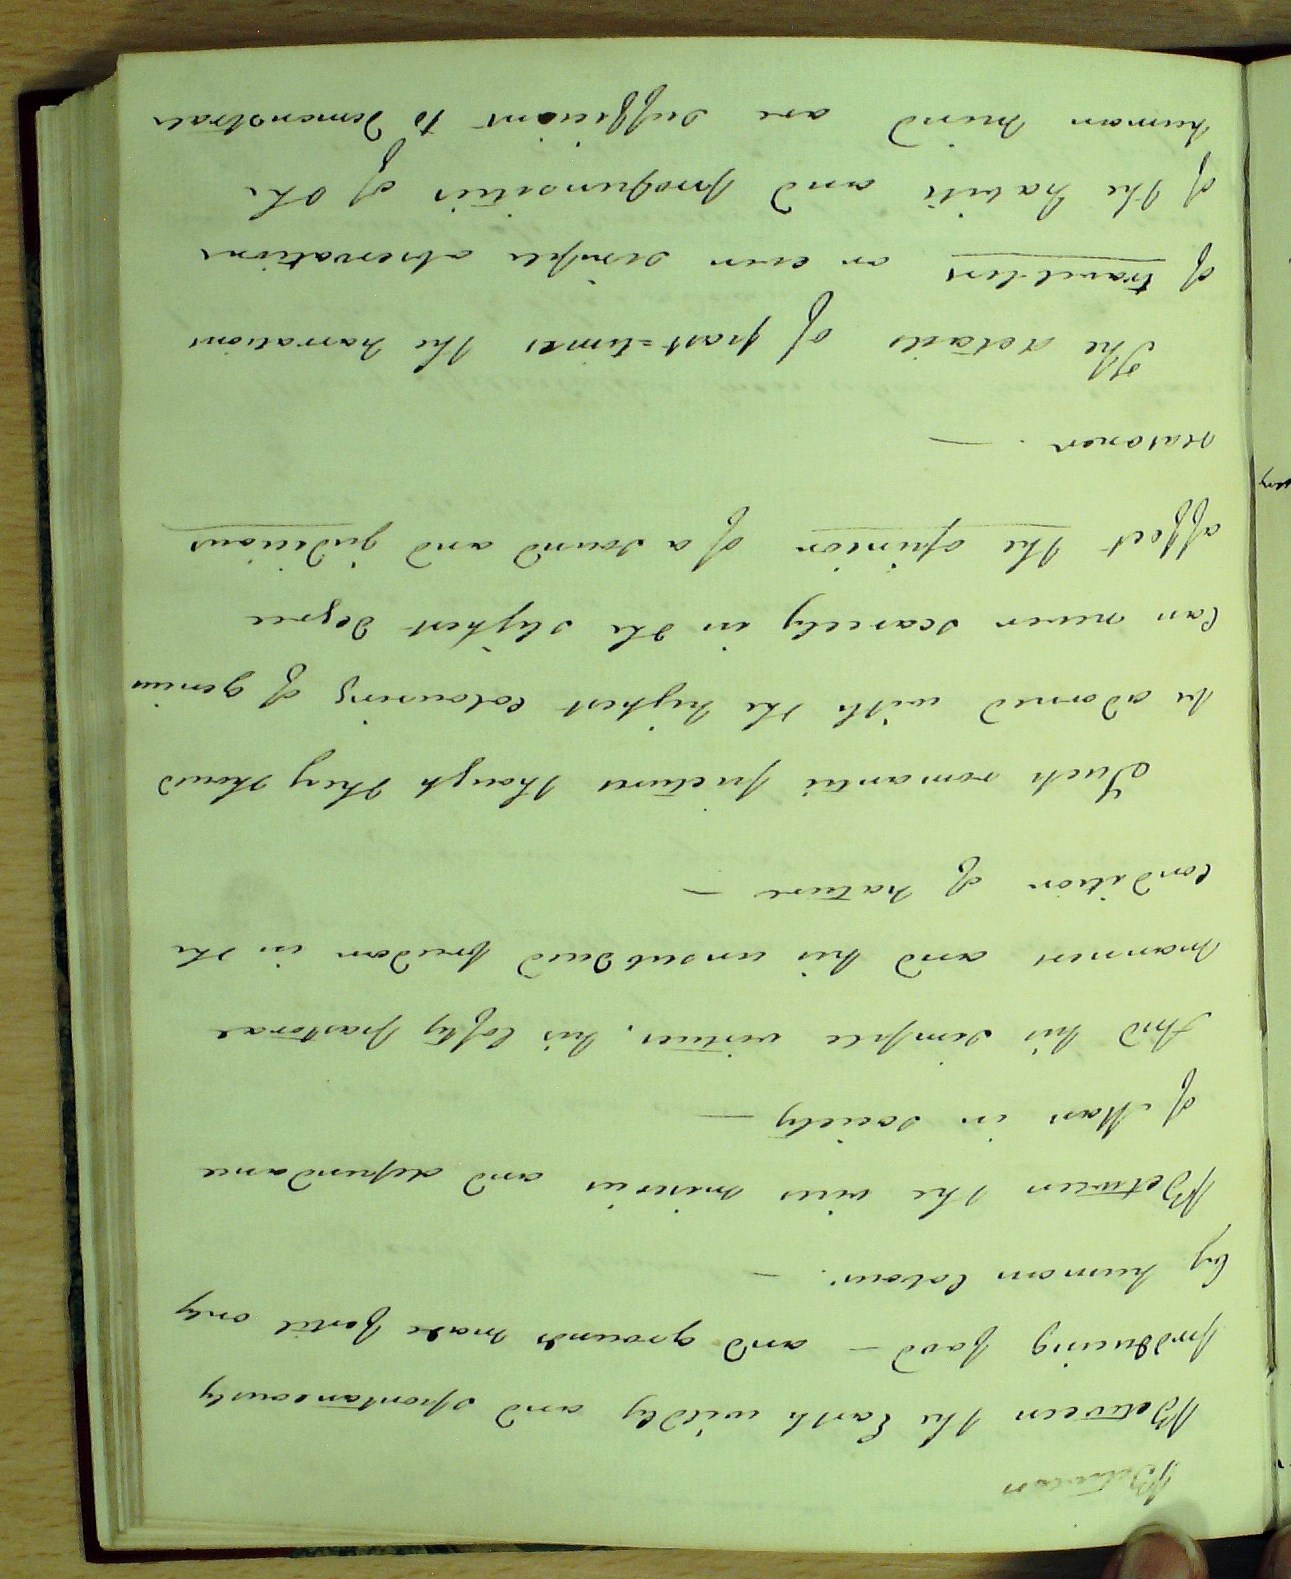 Between
Between the Earth wildly and spontaneously
producing food — and grounds made fertil only
by human labour. —
Between the vices miseries and dependance
of Man in society —
And his simple virtues, his lofty pastoral
manners and his unsubdued freedom in the
Condition of nature —
Such romantic pictures though they should
be adorned with the highest colouring of genius
Can never scarcely in the slightest degree
affect the opinion of a sound and judicious
reasoner. —
The details of past=times the narrations
of travellers or even simple observations
of the habits and propensities of the
human mind are sufficient to demonstrate